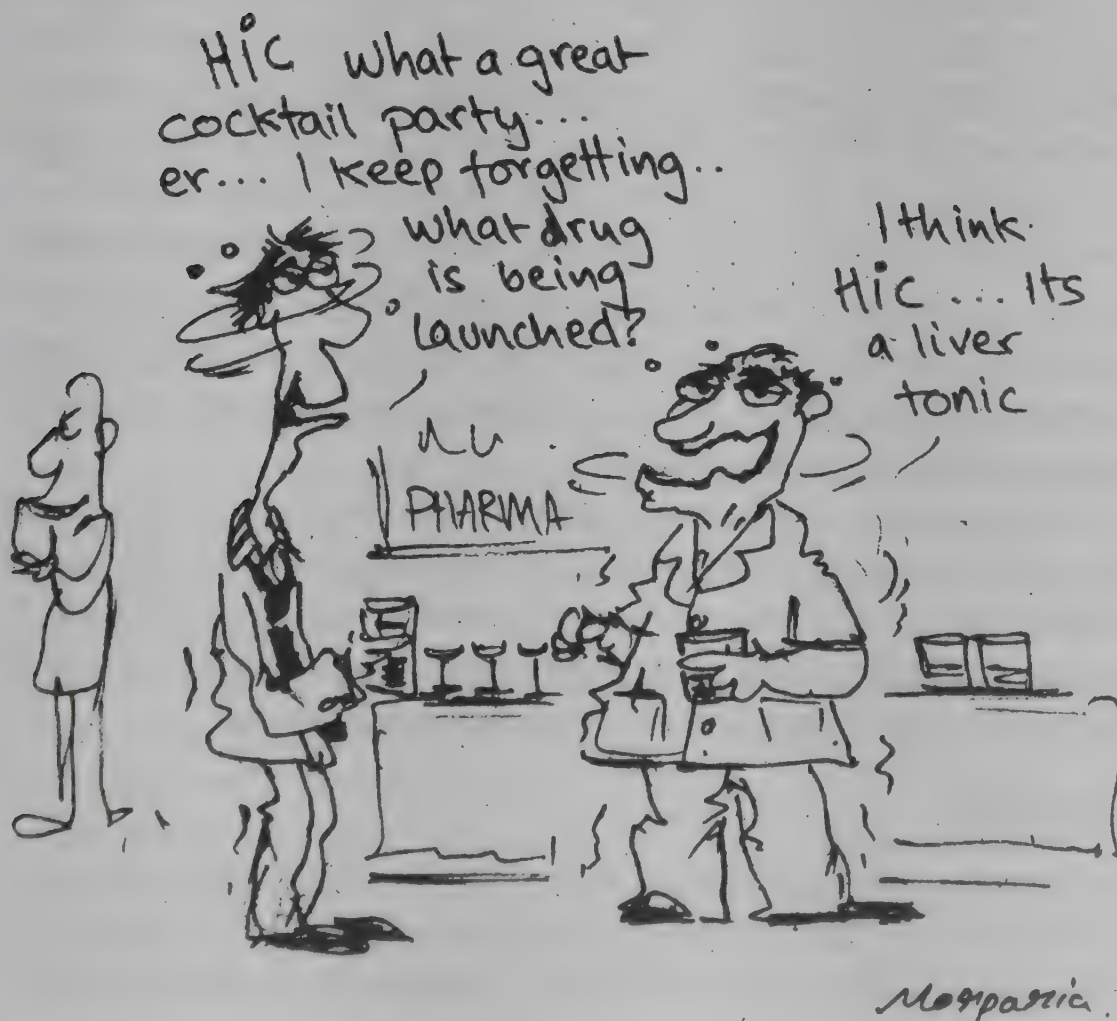 HiC what a great
cocktail party...
er... I keep forgetting..
what drug
is being
launched?
I think
HiC ... Its
a liver
tonic
PHARMA
Morparia.